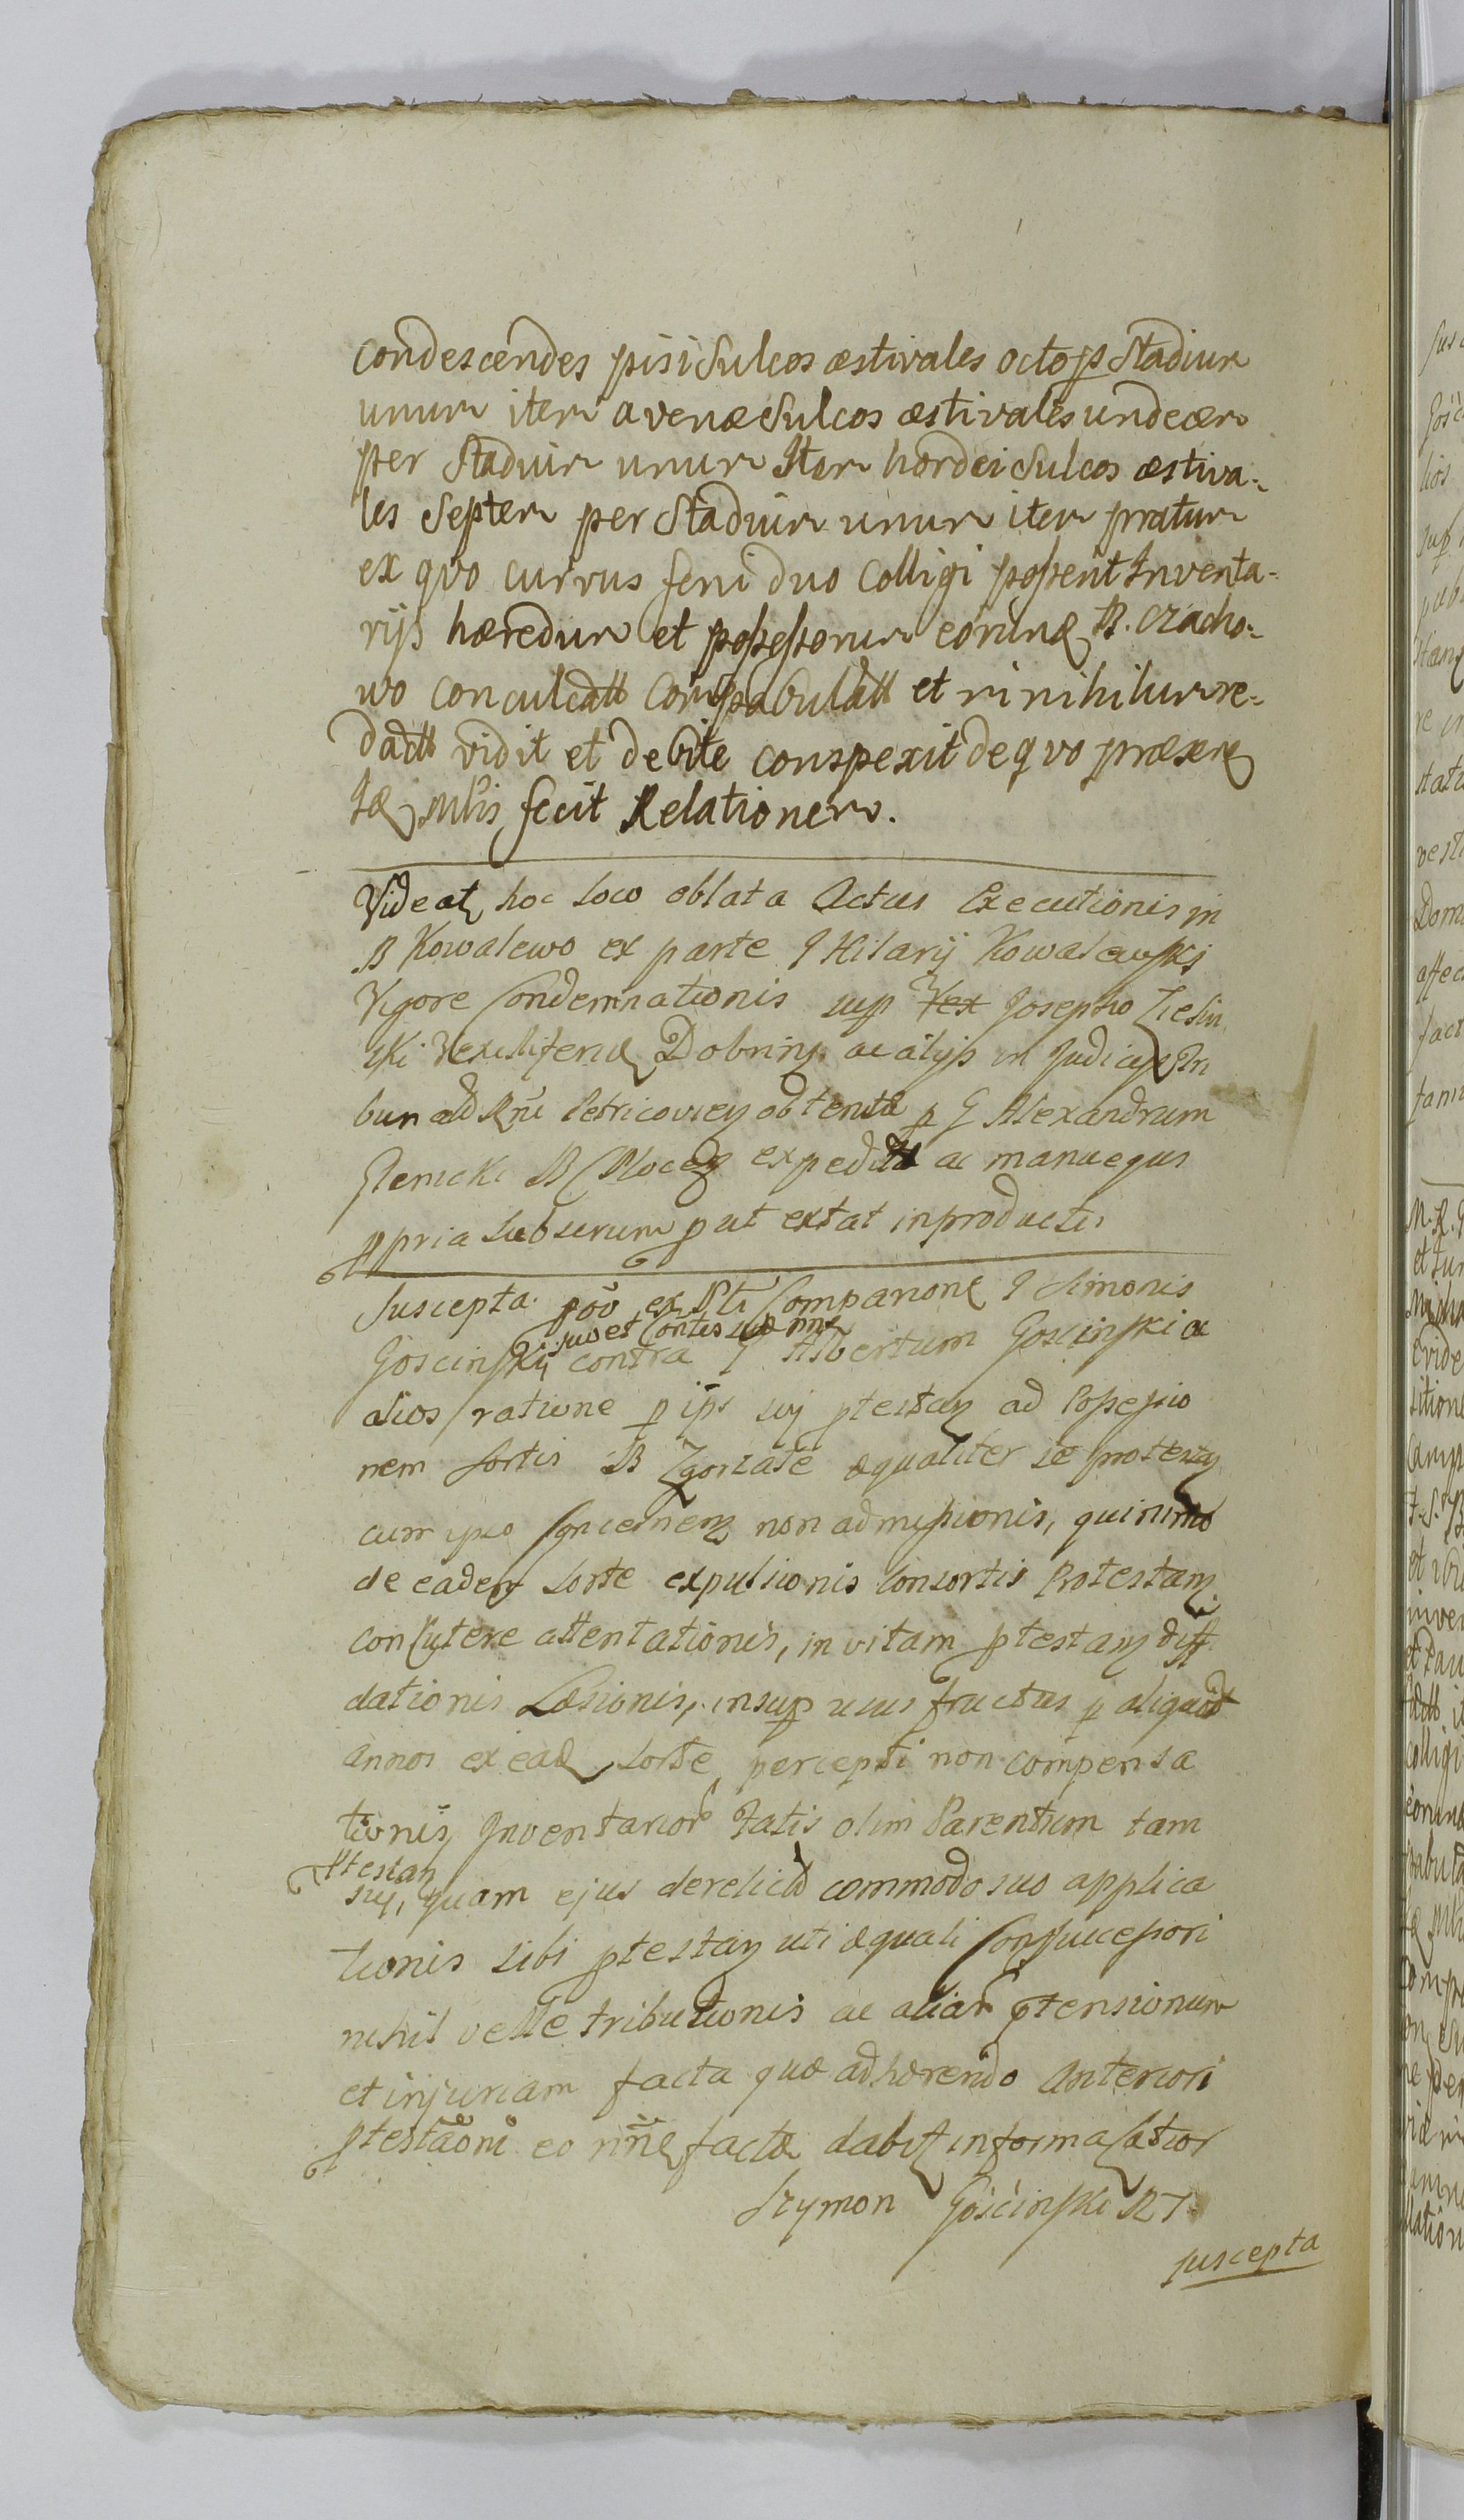 condescendes pisi Sulcos æstivales octo p Stadium
unum item avenæ Sulcos æstivales undecem
per Stadium unum Item hordei Sulcos æstiva-
les Septem per Stadium unum item pratum
ex quo currus feni duo Colligi possent Inventa-
rijs hæredum et possessorum eorund B. Czacho-
wo conculcatt compabulatt et in nihilum re-
dactt vidit et debite conspexit de quo præsen
fecit Relationem.
Videat hoc loco oblata Actus Executionis in
B Kowalewo ex parte G Hilarij Kowalewski
Vigore Condemnationis sup Josepho Zielin
ski Vexillifero Dobrinen ac alijs in Judicijs Tri
bunal Rni Petricovien obtenta p G Alexandrum
expedit ac manu ejus
ppria subscrum put extat in producto
Suscepta ex Pti Comparione G Simonis
suo et
Goscinskij contra G Albertum Goscinski ac
alios ratione p ips suj ptestan ad Possessio
nem Sortis B Zgorzałe æqualiter se protestan
cum ipso Concernen non admissionis, quinimo
de eadem sorte expulsionis Consortis Protestan
attentationis, in vitam ptestan diff
dationis Læsionis, insup usus fructus p aliquot
annos ex ead sorte percepti non compensa
tionis Inventarior fatis olim Parentum tam
Ptestan
suj, quam ejus derelict commodo suo applica
tionis sibi ptestan uti æquali Consuccessori
nihil velle tributionis ac aliar ptensionum
et injuriam facta quæ adhærendo Anteriori
ptestaoni eo nne factæ dabit informa latior
Szymon Gościnski
suscepta